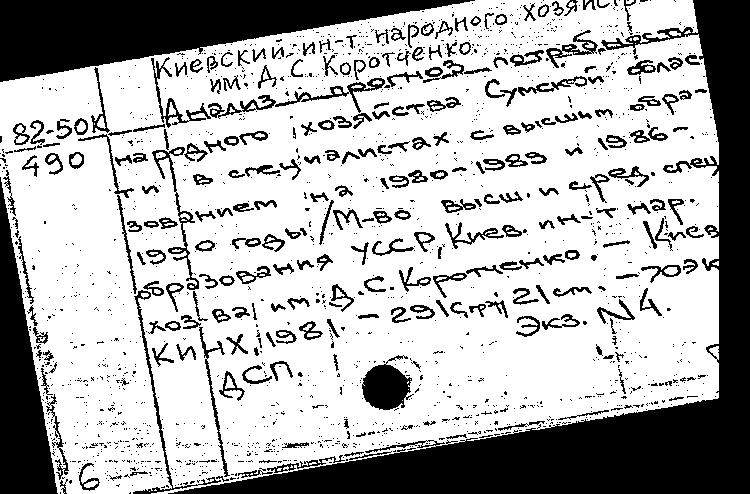 Киевский ин-т народного хозяйст
им. Д. С. Коротченко.
82-50К
490
Анализ и прогноз потребности
народного хозяйства Сумской облас-
ти в специалистах с высшим обра-
зованием на 1980-1985 и 1986-
1990 годы / М-во высш. и сред. спец
образования УССР, Киев. ин-т нар.
хоз-ва им. Д. С. Коротченко. – Киев
КИНХ, 1981. – 29 стр; 21 см. – 70 эк
ДСП. Экз. N 4.
6